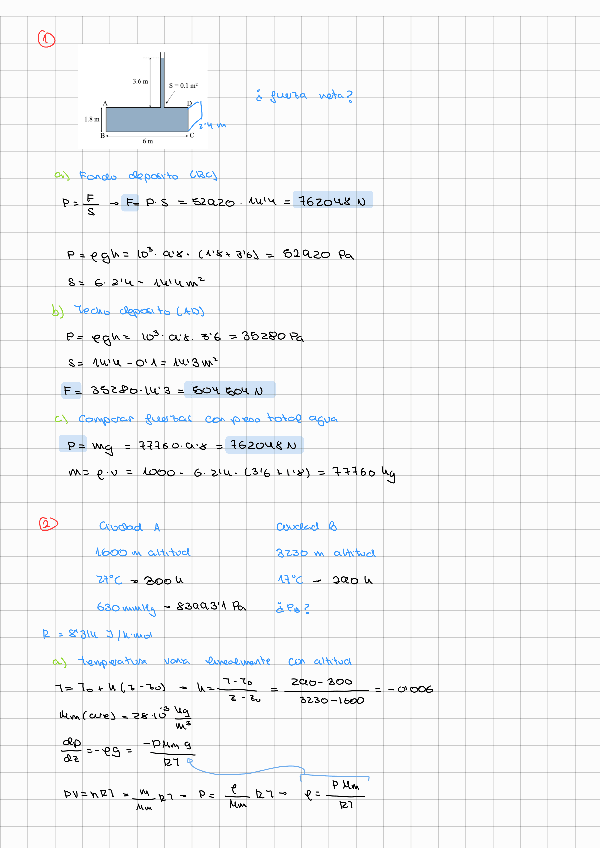 1
3.6 m
S = 0.1 m²
¿ fuerza neta?
A D
1.8 m
2'4 m
B C
6 m
a) Fondo depósito (BC)
P = F/S → F = P · S = 52920 · 14'4 = 762048 N
P = ρgh = 10³ · 9'8 · (1'8 + 3'6) = 52920 Pa
S = 6 · 2'4 = 14'4 m²
b) Techo depósito (AD)
P = ρgh = 10³ · 9'8 · 3'6 = 35280 Pa
S = 14'4 - 0'1 = 14'3 m²
F = 35280 · 14'3 = 504 504 N
c) Comparar fuerzas con peso total agua
P = mg = 77760 · 9'8 = 762048 N
m = ρ · v = 1000 · 6 · 2'4 · (3'6 + 1'8) = 77760 kg
2
Ciudad A Ciudad B
1600 m altitud 3230 m altitud
27°C → 300 K 17°C → 290 K
630 mmHg → 83993'1 Pa ¿P_B?
R = 8'314 J/K·mol
a) temperatura varía linealmente con altitud
T = T₀ + K (z - z₀) → K = (T - T₀)/(z - z₀) = (290 - 300)/(3230 - 1600) = -0'006
Mm (aire) = 28·10⁻³ kg/m³
dp/dz = -ρg = -P Mm g/RT
PV = nRT = m/Mm RT → P = ρ/Mm RT → ρ = P Mm/RT